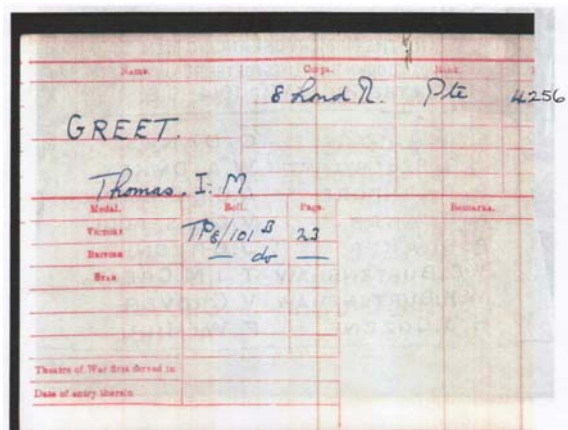 Name. Corps. Rank.
8 Lond R. Pte 4256
GREET.
Thomas. I. M.
Medal. Roll. Page. Remarks.
VICTORY TP8/101 B 23
BRITISH — do —
STAR
Theatre of War first served in
Date of entry therein